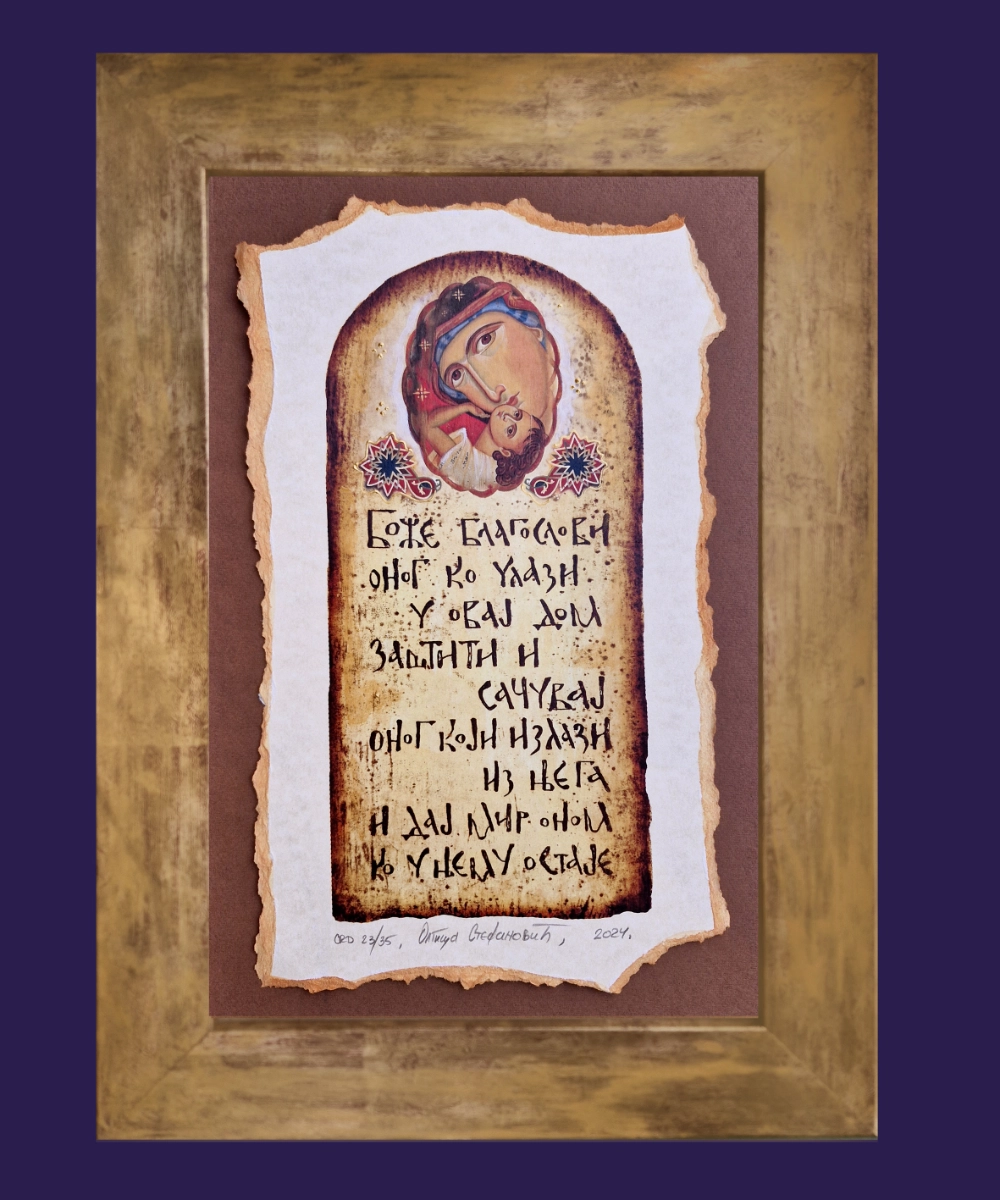 Боже благослови
оног ко улази
у овај дом
заштити и
сачувај
оног који излази
из њега
и дај мир оном
ко у њему остаје
23/35, Стефановић, 2024.